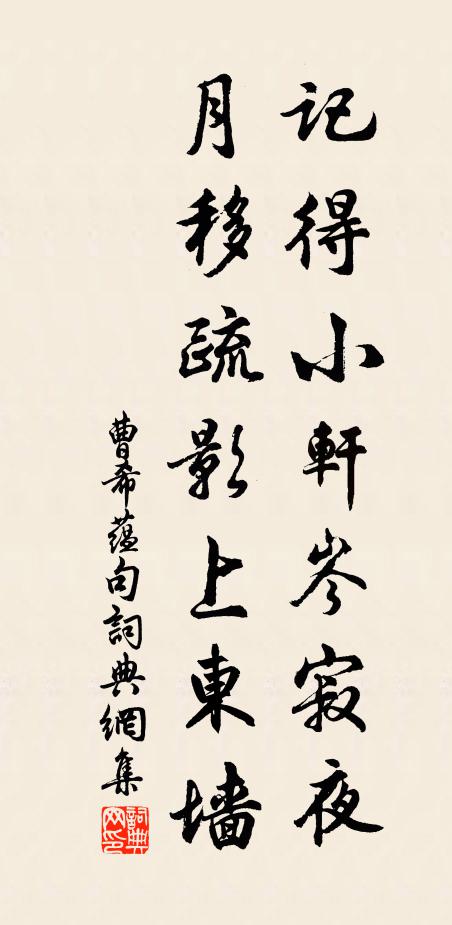 記得小軒岑寂夜
月移疏影上東墻
曹希蕴句詞典網集
詞典网印